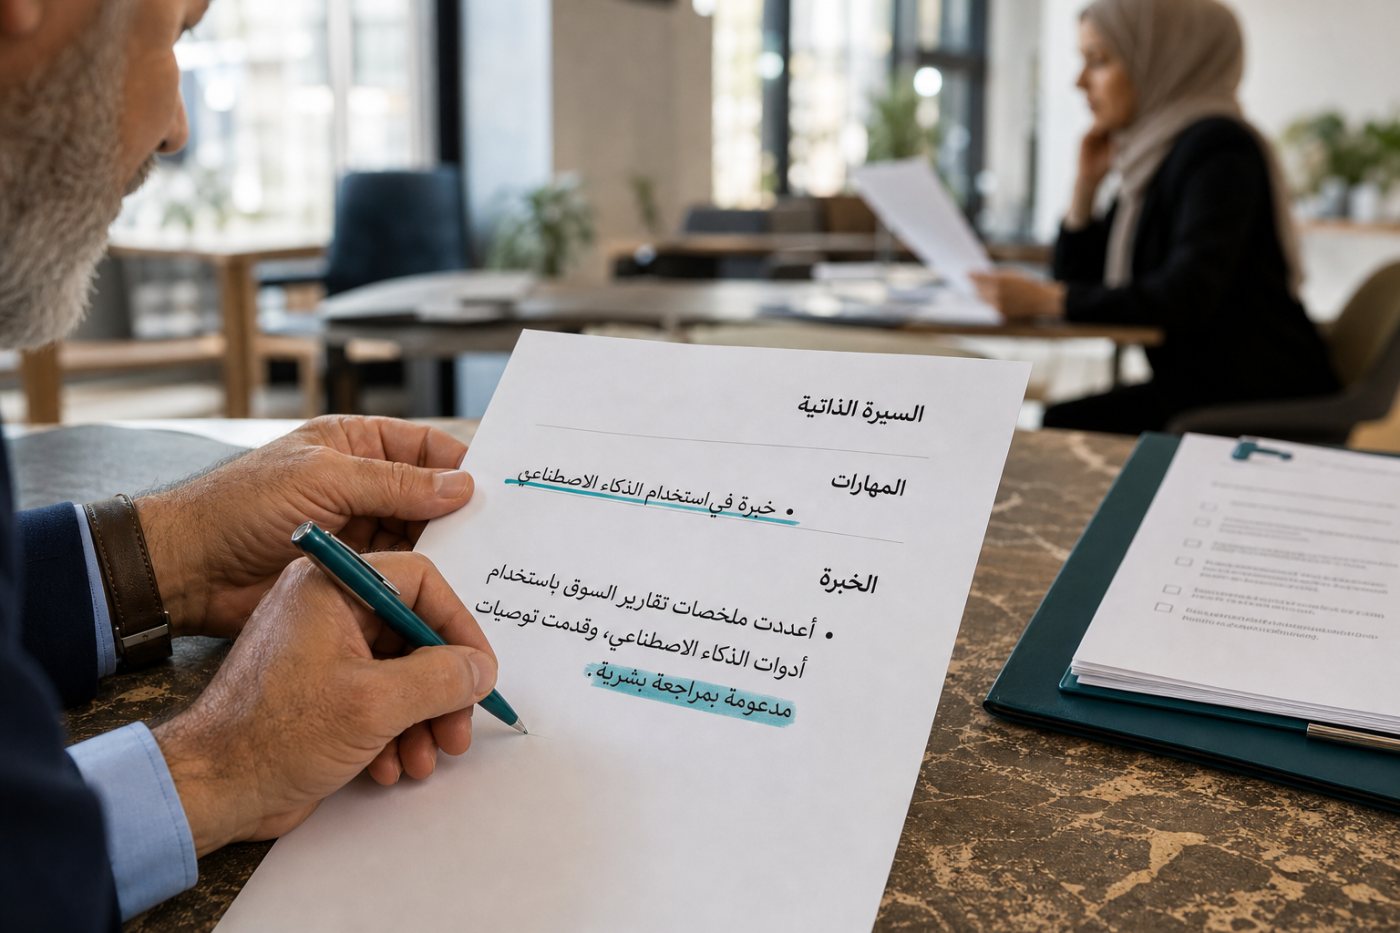 السيرة الذاتية
المهارات
• خبرة في استخدام الذكاء الاصطناعي
الخبرة
• أعددت ملخصات تقارير السوق باستخدام
أدوات الذكاء الاصطناعي، وقدمت توصيات
مدعومة بمراجعة بشرية.